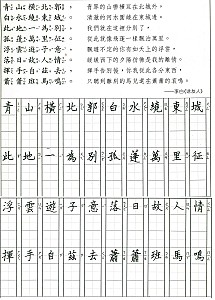 青山橫北郭, 青翠的山巒橫亙在北城外,
白水繞東城。 清澈的河水圍繞在東城邊。
此地一為別, 我們就在這裡分別了,
孤蓬萬里征。 從此就像飛蓬一樣飄泊萬里。
浮雲遊子意, 飄遊不定的你有如天上的浮雲,
落日故人情。 緩緩西下的夕陽彷彿是我的離情。
揮手自茲去, 揮手告別後,你我從此各分東西,
蕭蕭班馬鳴。 只聽到離別的馬兒還在蕭蕭的哀鳴。
——李白《送友人》
青山橫北郭白水繞東城
此地一為別孤蓬萬里征
浮雲遊子意落日故人情
揮手自茲去蕭蕭班馬鳴